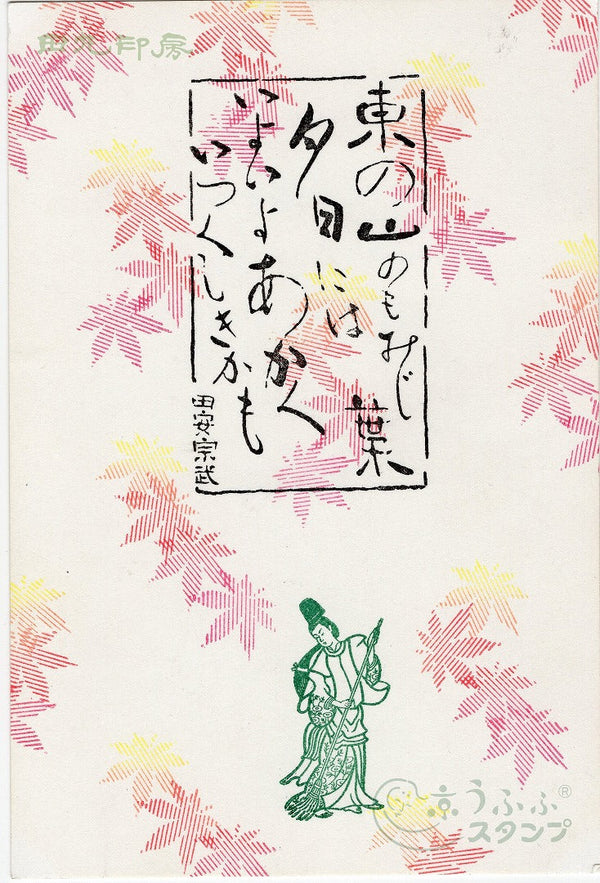 田丸印房
東の山のもみじ葉
夕日には
いよいよあかく
いつくしきかも
田安宗武
京うふふ®
スタンプ